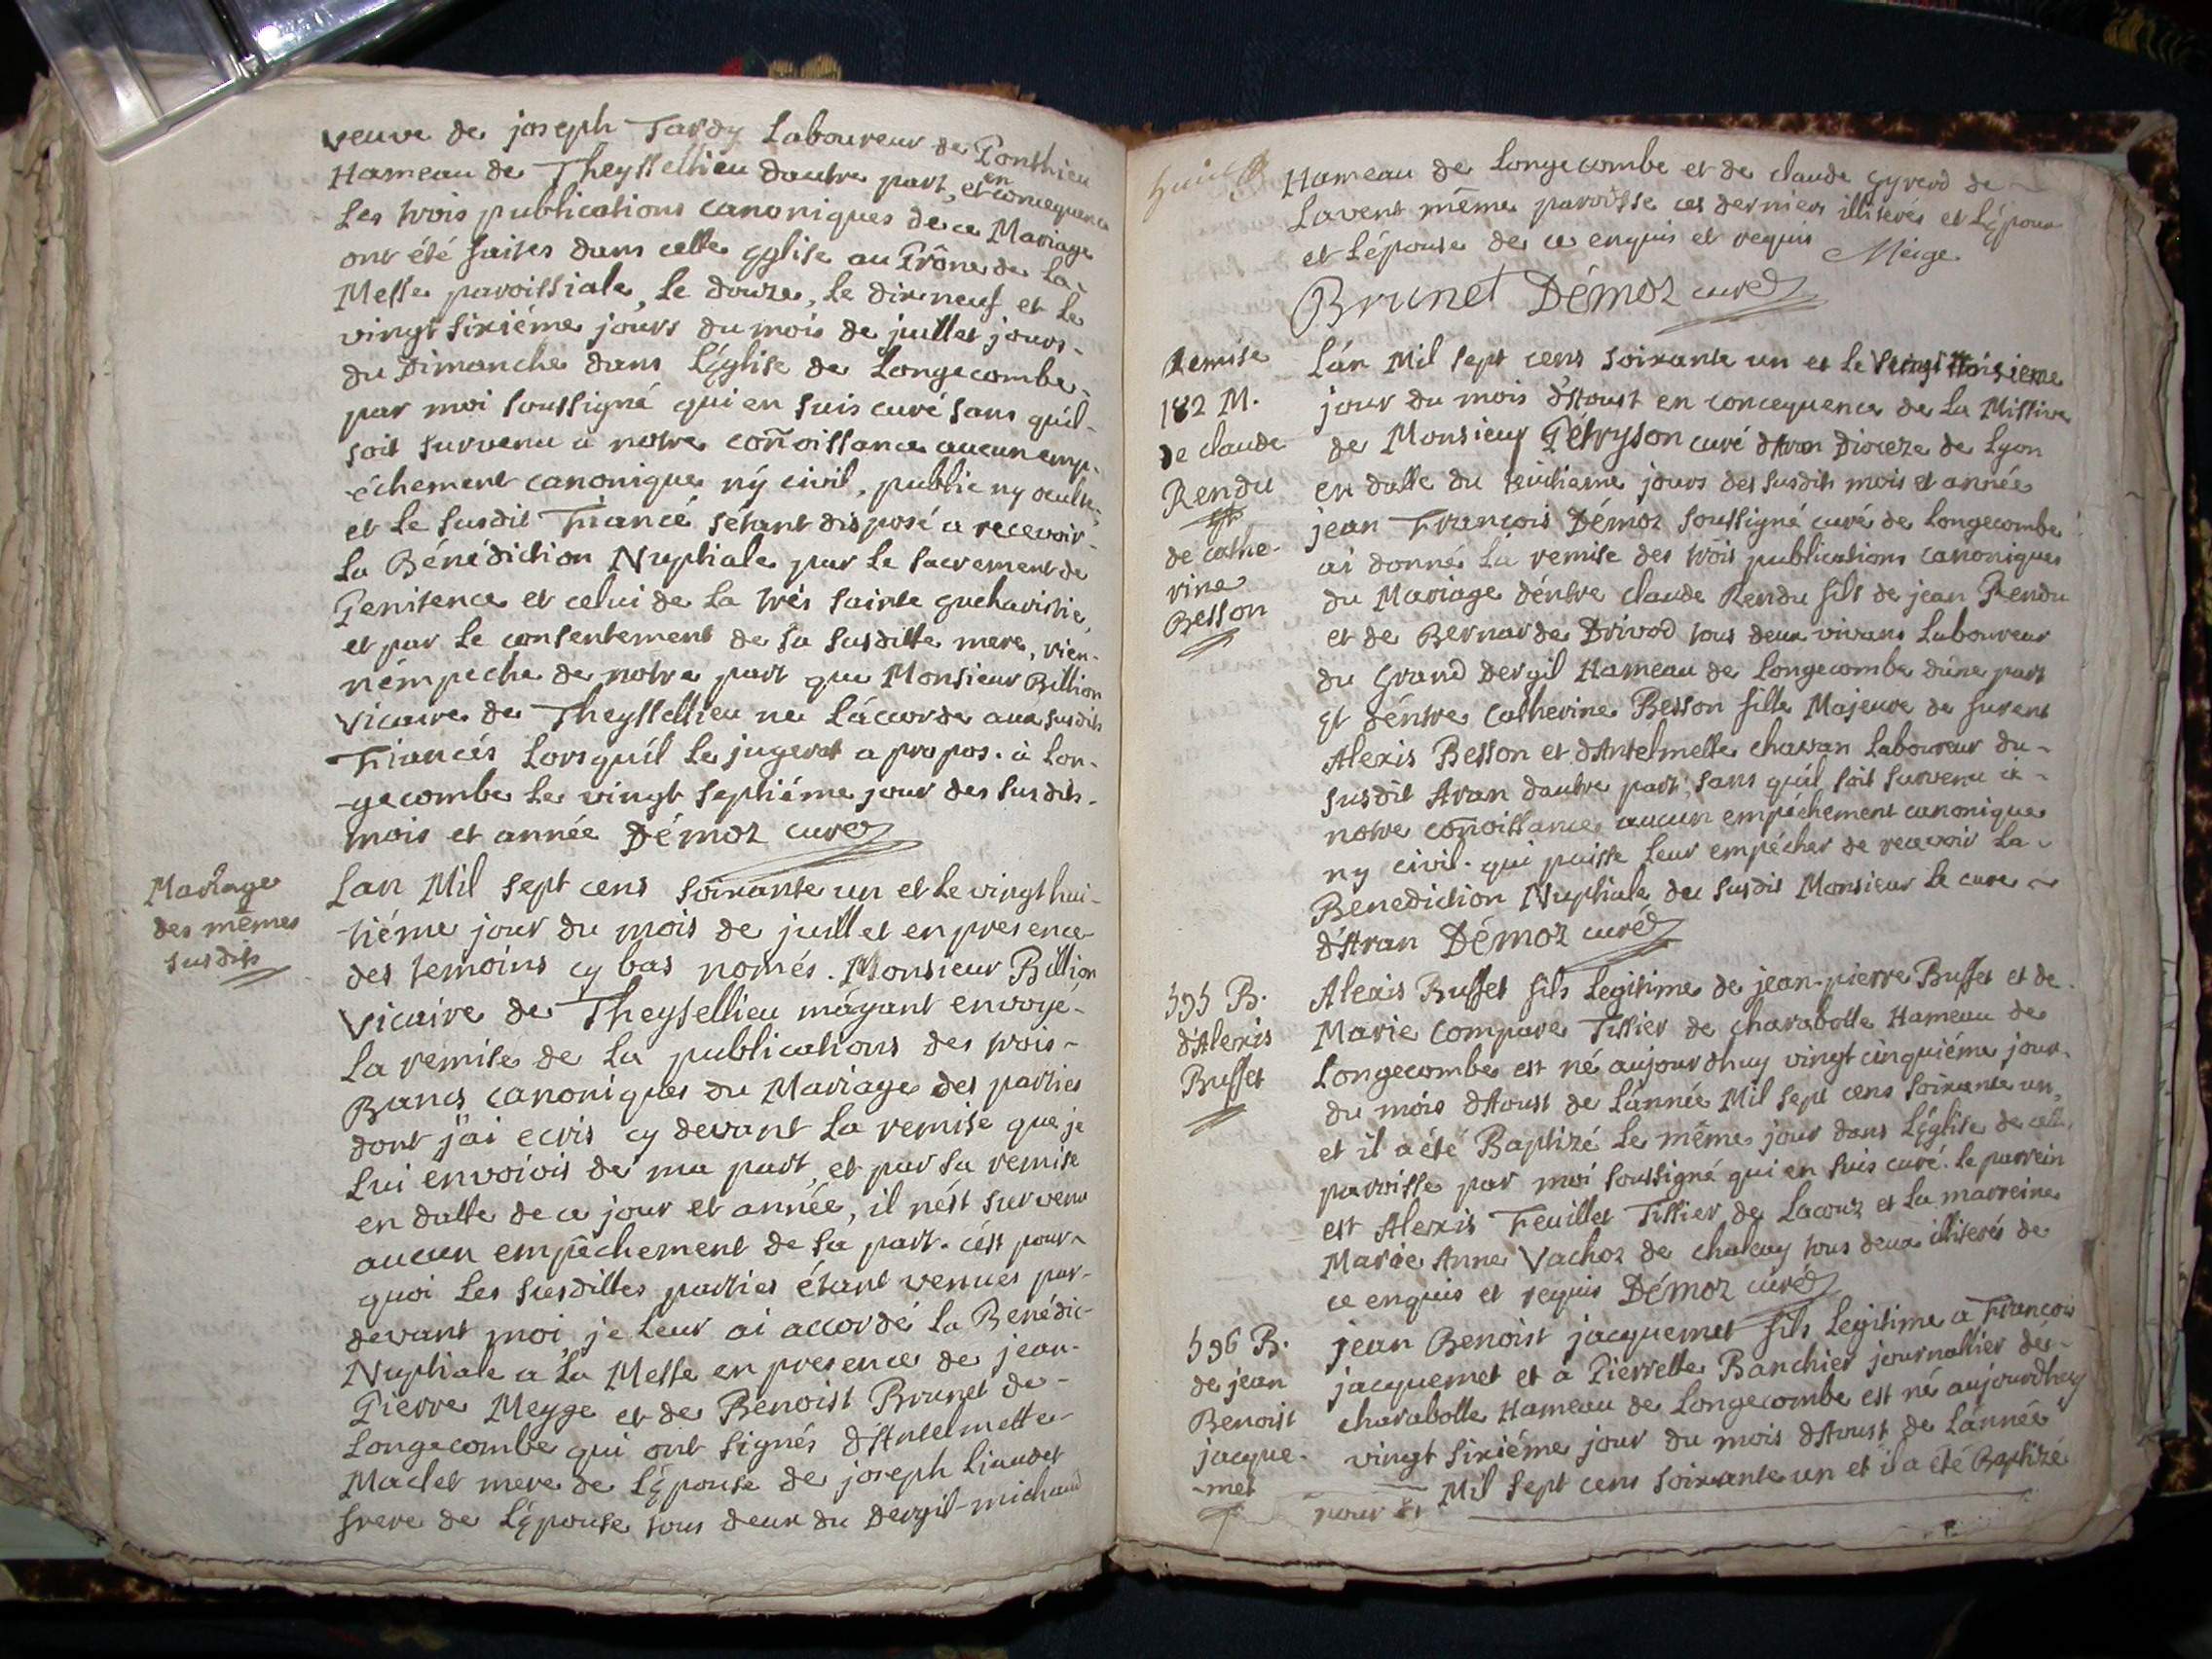 veuve de joseph Tardy Laboureur de Ponthieu
Hameau de Theyssellieu dautre part, et en concequence
Les trois publications canoniques de ce Mariage
ont été faites dans cette Eglise au Prône de La
Messe paroissiale, Le douze, Le dixneuf et Le
vingt sixiéme jours du mois de juillet jours-
du Dimanche dans L'Eglise de Longecombe-
par moi soussigné qui en suis curé sans quil-
soit survenu a notre connoissance aucun emp-
-êchement canonique ny civil, public ny oculte,
et Le susdit Fiancé s'étant disposé a recevoir-
La Bénédiction Nuptiale par Le sacrement de
Penitence et celui de La très sainte Euchavistie,
et par Le consentement de sa susditte mere, rien-
n'émpeche de notre part que Monsieur Billion
Vicaire de Theyssellieu ne L'accorde aux susdits
Fiancés Lorsqu'il Le jugerat a propos. à Lon-
-gecombe Le vingt septiéme jour des susdits-
mois et année Démoz curé
Mariage
des mêmes
susdits
Lan Mil sept cens soixante un et Le vingt hui-
-tiéme jour du mois de juillet en presence
des temoins cy bas només. Monsieur Billion
Vicaire de Theysellieu m'ayant envoyé-
La remise de La publications des trois-
Bancs canoniques du Mariage des parties
dont j'ai ecris cy devant La remise que je
Lui envoiois de ma part, et par sa remise
en datte de ce jour et année, il n'ést survenu
aucun empêchement de sa part. c'ést pour-
quoi Les susdittes parties étant venues par-
devant moi, je Leur ai accordé La Benédic-
Nuptiale a La Messe en presence de jean-
Pierre Meyge et de Benoist Brunet de-
Longecombe qui ont signés d'Antelmette-
Maclet mere de L'Epouse de joseph Liaudet
frere de L'Epouse tous deux du Dergil-michaud
Hameau de Longecombe et de claude Gyrerd de-
Lavent même paroisse ces derniers illiterés et L'Epoux
et L'épouse de ce enquis et requis Meige
Brunet Démoz curé
Remise
182 M.
de claude
Rendu
et
de cathe-
rine
Besson
L'an Mil sept cens soixante un et Le vingt troisieme
jour du mois d'Aoust en concequence de La Missive
de Monsieur Pétryson curé d'Aran Dioceze de Lyon
en datte du jours des susdits mois et année
jean Francois Démoz soussigné curé de Longecombe
ai donné La remise des trois publications canoniques
du Mariage d'éntre claude Rendu fils de jean Rendu
et de Bernarda Drivod tous deux vivans Laboureur
du grand Dergil Hameau de Longecombe d'une part
Et d'éntre Catherine Besson fille Majeure de furent
Alexis Besson et d'Antelmette chavan Laboureur du-
susdit Aran dautre part, sans qu'il soit survenu a-
notre connoissance aucun empéchement canonique
ny civil. qui puisse Leur empécher de recevoir La-
Benediction Nuptiale du susdit Monsieur Le cure-
d'Aran Démoz curé
595 B.
d'Alexis
Buffet
Alexis Buffet fils Legitime de jean-pierre Buffet et de-
Marie Compare Tissier de charabotte Hameau de
Longecombe est né aujourdhuy vingt cinquiéme jour-
du mois d'Aoust de L'année Mil sept cens soixante un,
et il a été Baptizé Le même jour dans L'Eglise de cette
paroisse par moi soussigné qui en suis curé. Le parrein
est Alexis Feuillet Tissier de Lacouz et La marreine
Marie Anne Vachoz de chaley tous deux illiterés de
ce enquis et requis Démoz curé
596 B.
de jean
Benoist
jacque-
-met
jean Benoist jacquemet fils Legitime a Francois
jacquemet et a Pierrette Banchier journallier de-
charabotte Hameau de Longecombe est né aujourdhuy
vingt sixiéme jour du mois d'Aoust de L'année
Mil sept cens soixante un et il a été Baptizé